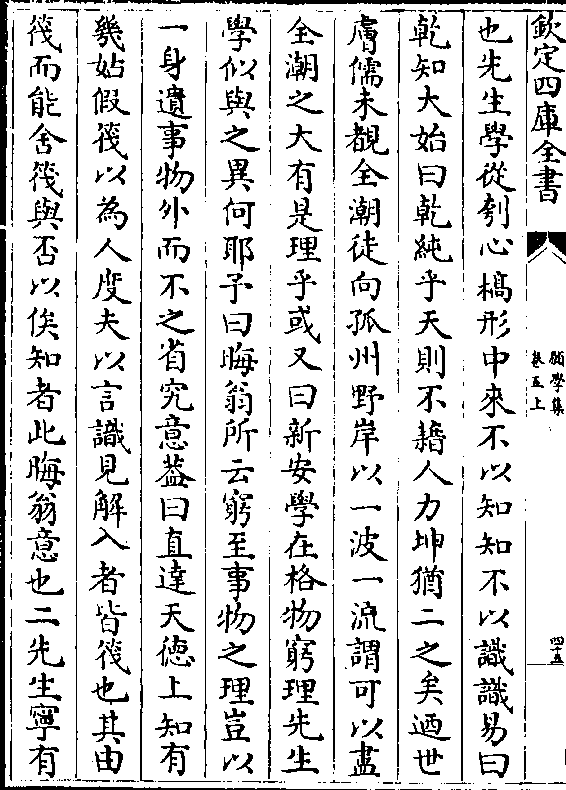 欽定四庫全書
願學集
卷五上
四十五
也先生學從刳心槁形中來不以知知不以識識易曰
乾知大始曰乾純乎天則不藉人力坤猶二之矣迺世
膚儒未觀全潮徒向孤州野岸以一波一流謂可以盡
全潮之大有是理乎或又曰新安學在格物窮理先生
學似與之異何耶予曰晦翁所云窮至事物之理豈以
一身遺事物外而不之省究意葢曰直達天德上知有
幾姑假筏以為人度夫以言識見解入者皆筏也其由
筏而能舍筏與否以俟知者此晦翁意也二先生寧有